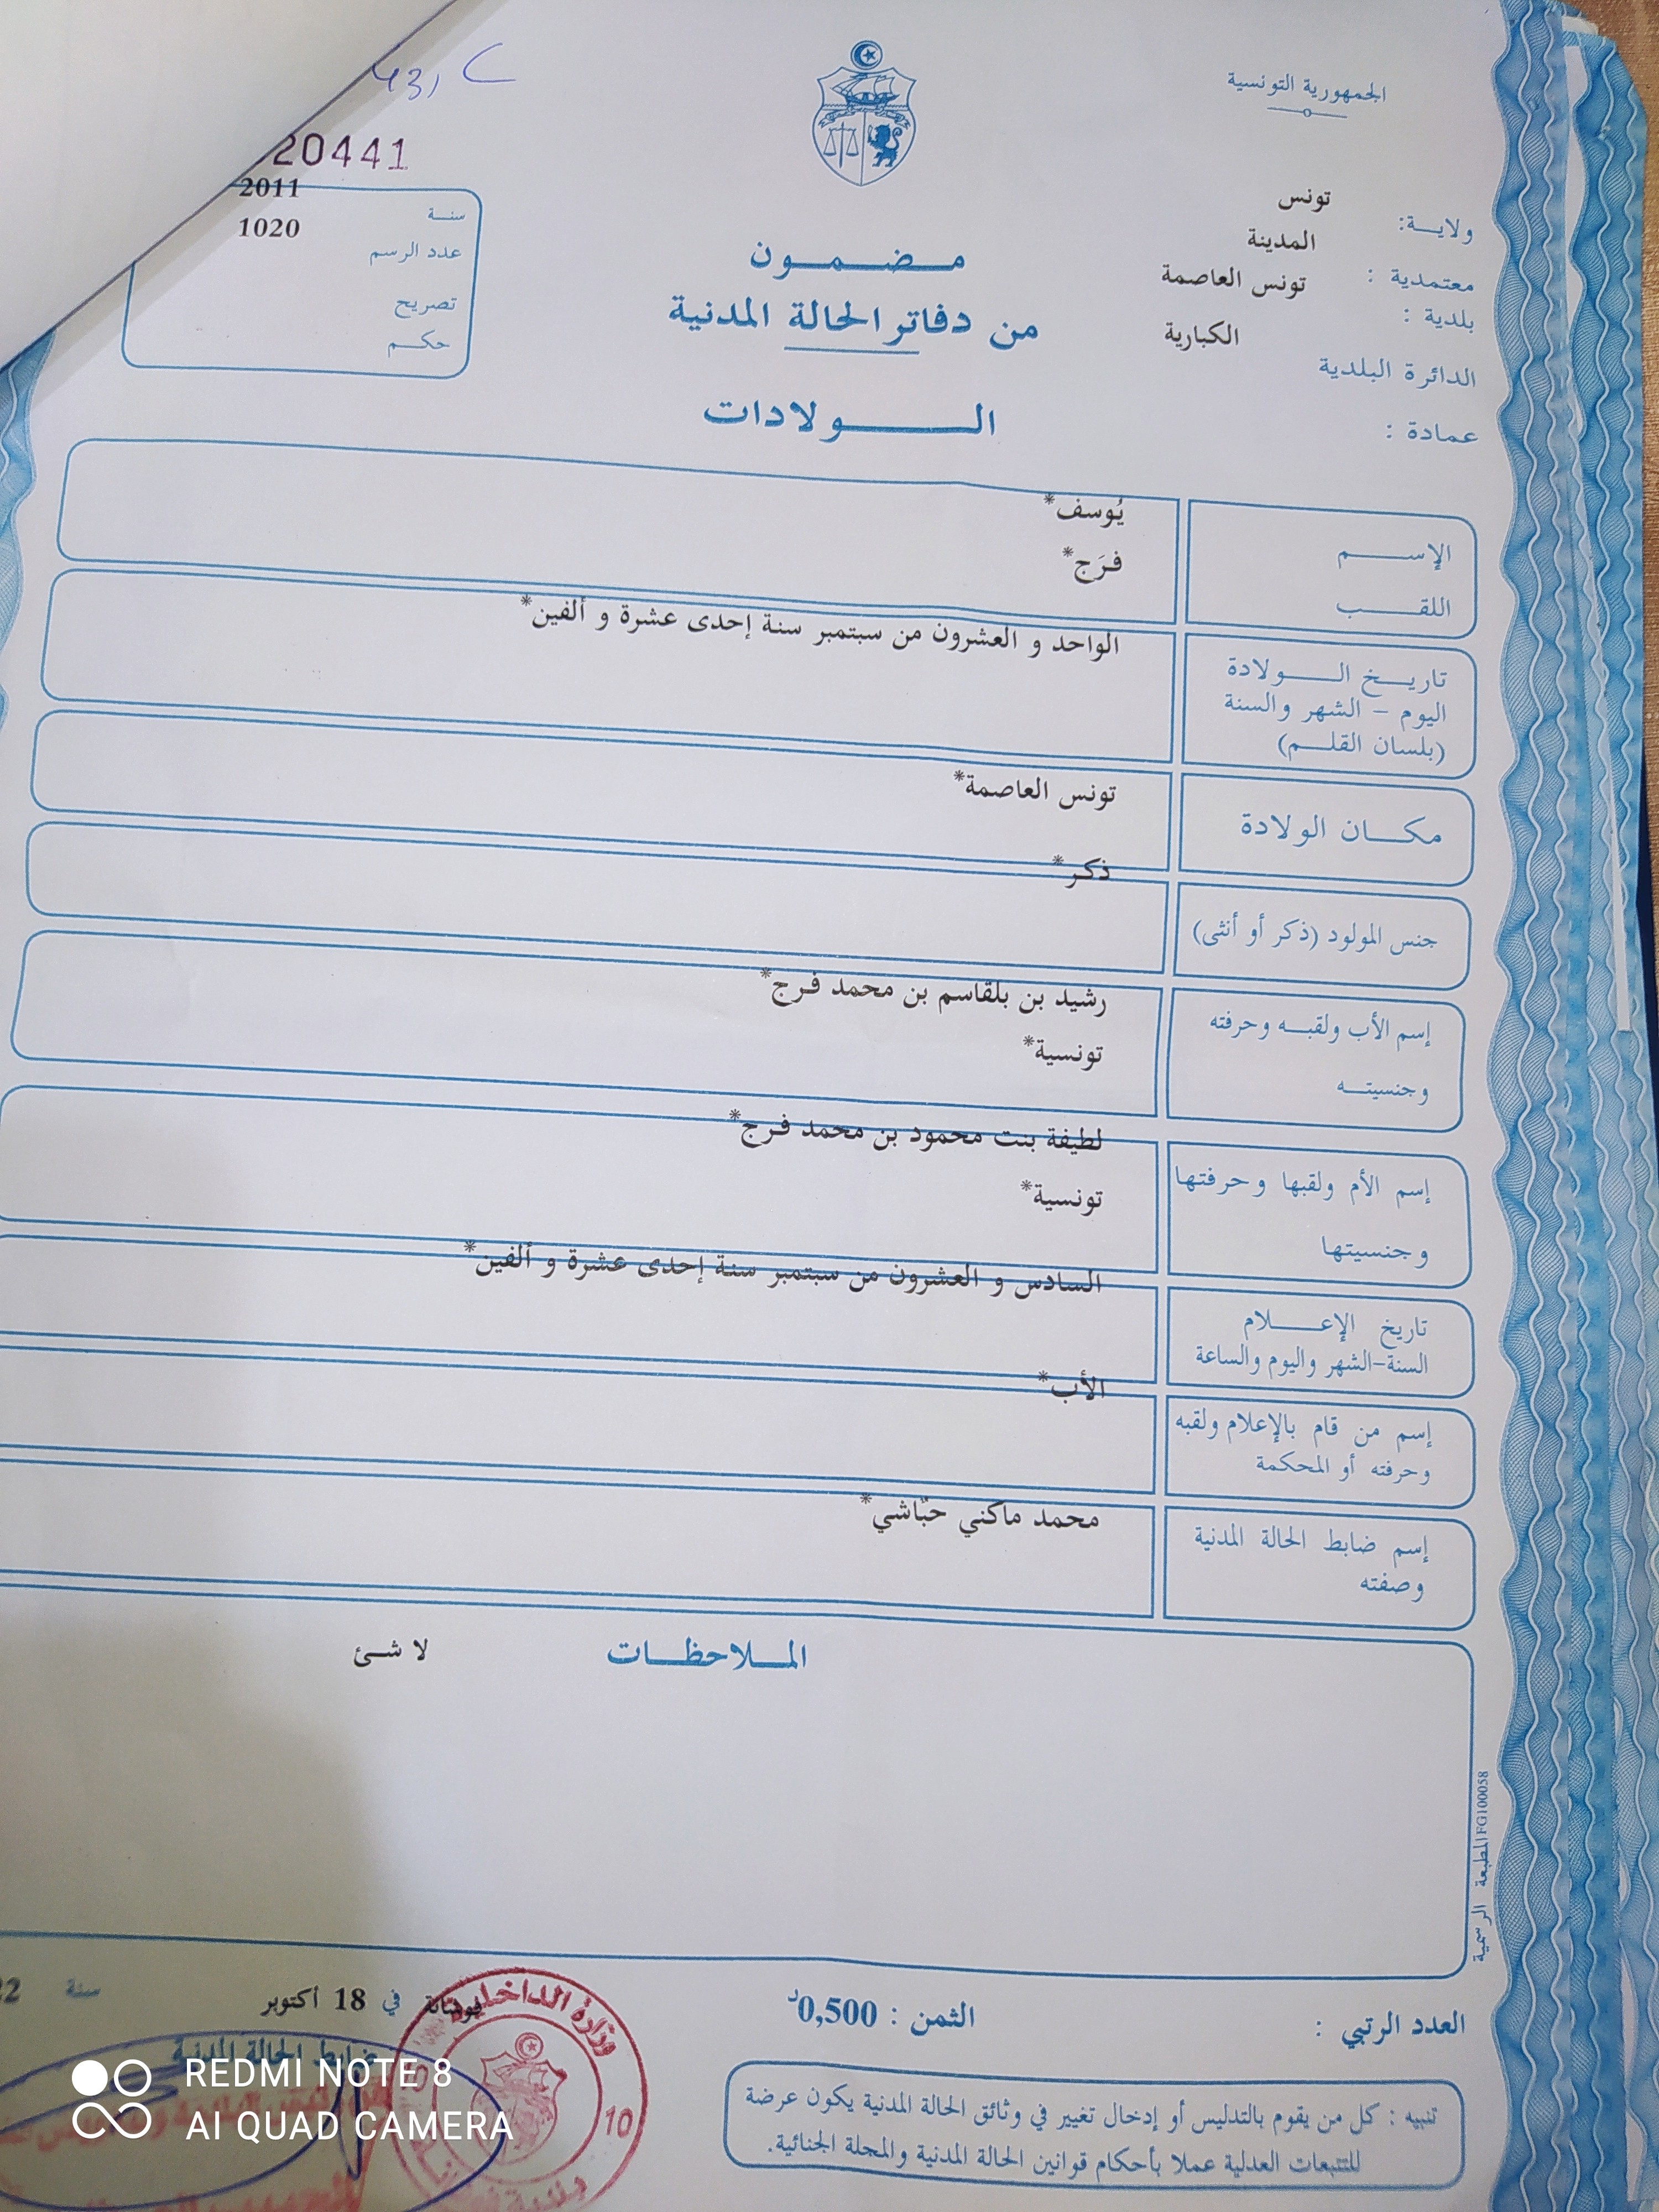 الجمهورية التونسية
ولايـة: تونس
معتمدية : المدينة
بلدية : تونس العاصمة
الدائرة البلدية الكبارية
عمادة :
20441
سنـة 2011
عدد الرسم 1020
تصريح
حكـم
مـضـمـون
من دفاتر الحالة المدنية
الـولادات
الإسـم يُوسف*
اللقـب فرَج*
تاريـخ الـولادة
اليوم – الشهر والسنة
(بلسان القلـم)
الواحد و العشرون من سبتمبر سنة إحدى عشرة و ألفين*
مكـان الولادة تونس العاصمة*
جنس المولود (ذكر أو أنثى) ذكر*
إسم الأب ولقبـه وحرفته رشيد بن بلقاسم بن محمد فرج*
وجنسيتـه تونسية*
إسم الأم ولقبها وحرفتها لطيفة بنت محمود بن محمد فرج*
وجنسيتها تونسية*
تاريخ الإعـلام
السنة-الشهر واليوم والساعة
السادس و العشرون من سبتمبر سنة إحدى عشرة و ألفين*
إسم من قام بالإعلام ولقبه
وحرفته أو المحكمة
الأب*
إسم ضابط الحالة المدنية
وصفته
محمد ماكني حبّاشي*
المـلاحظـات لا شئ
المطبعة الرسمية FG100058
العدد الرتبي :
الثمن : 0,500د
فوسانة في 18 أكتوبر سنة
ضابط الحالة المدنية
وزارة الداخلية
10
تنبيه : كل من يقوم بالتدليس أو إدخال تغيير في وثائق الحالة المدنية يكون عرضة
للتتبعات العدلية عملا بأحكام قوانين الحالة المدنية والمجلة الجنائية.
REDMI NOTE 8
AI QUAD CAMERA